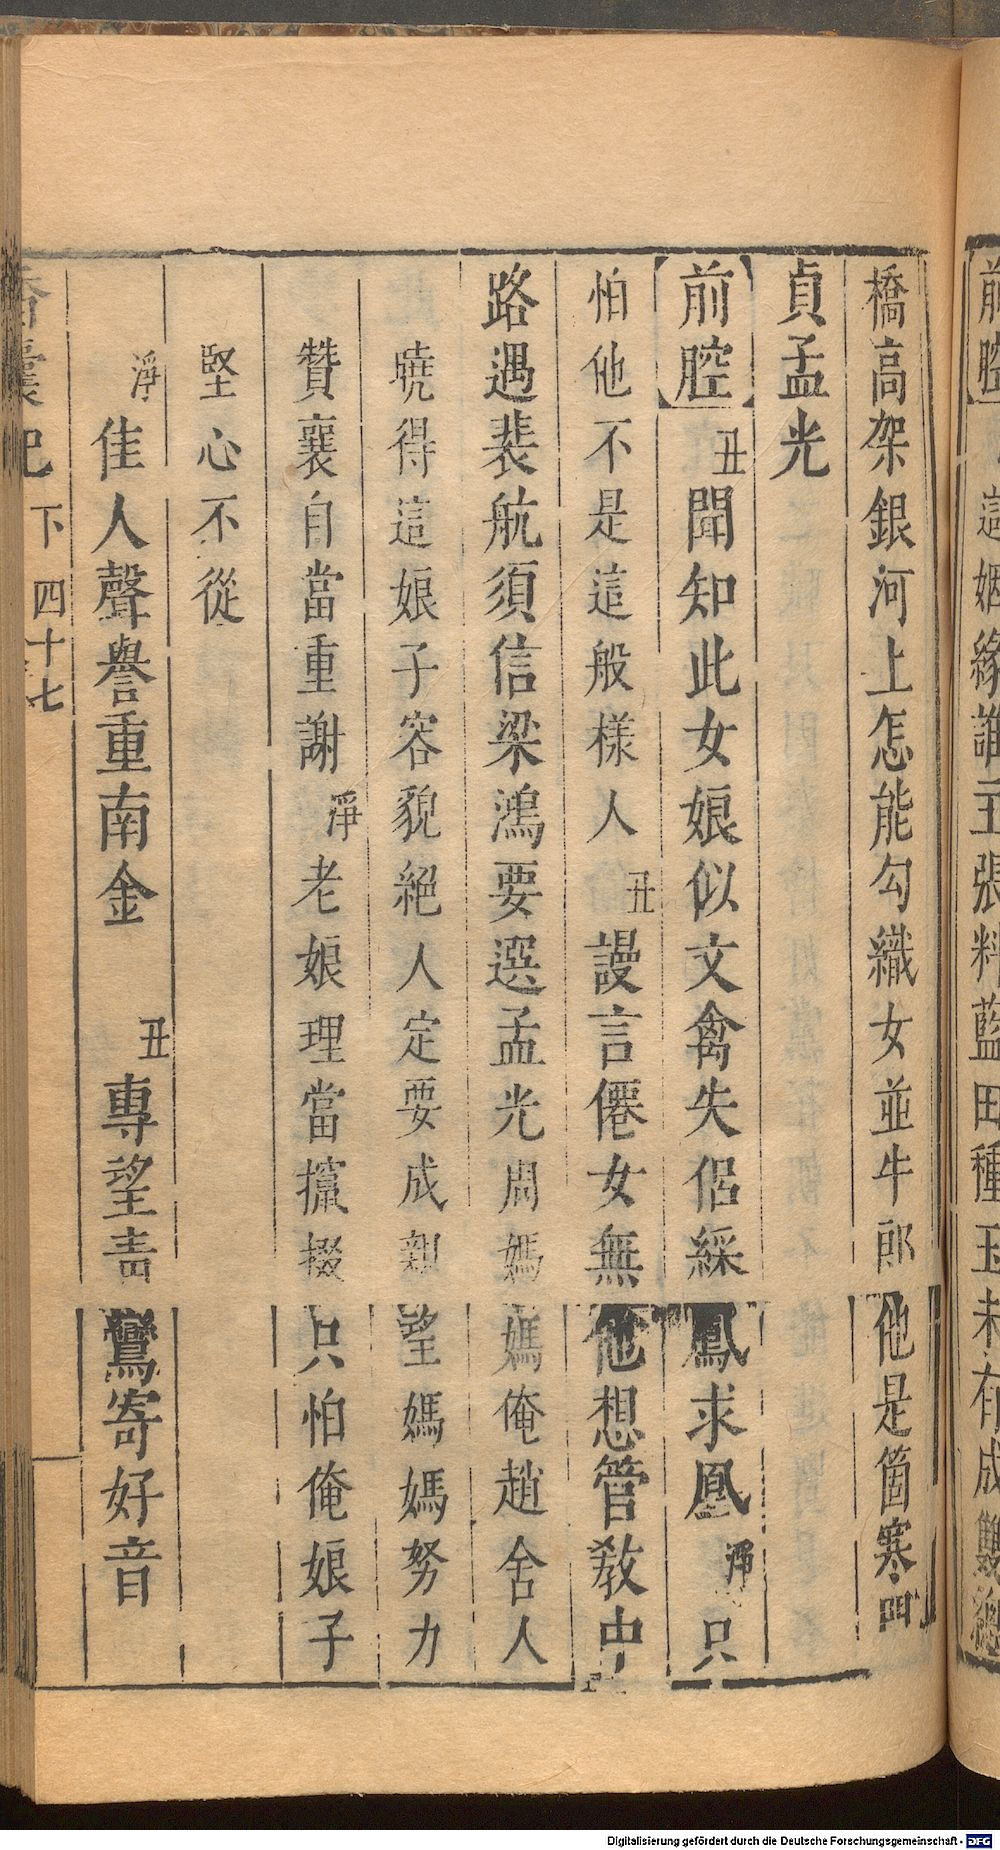 前腔 這姻緣誰主張料藍田種玉未有成雙總
橋高架銀河上怎能勾織女並牛郎他是箇寒門
貞孟光
【前腔】丑聞知此女娘似文禽失侶綵鳳求凰淨只
怕他不是這般樣人丑謾言僊女無他想管教中
路遇裴航須信梁鴻要選孟光周媽媽俺趙舍人
曉得這娘子容貌絕人定要成親望媽媽努力
贊襄自當重謝淨老娘理當攛掇只怕俺娘子
堅心不從
淨佳人聲譽重南金 丑專望青鸞寄好音
香囊記 下 四十七
Digitalisierung gefördert durch die Deutsche Forschungsgemeinschaft - DFG